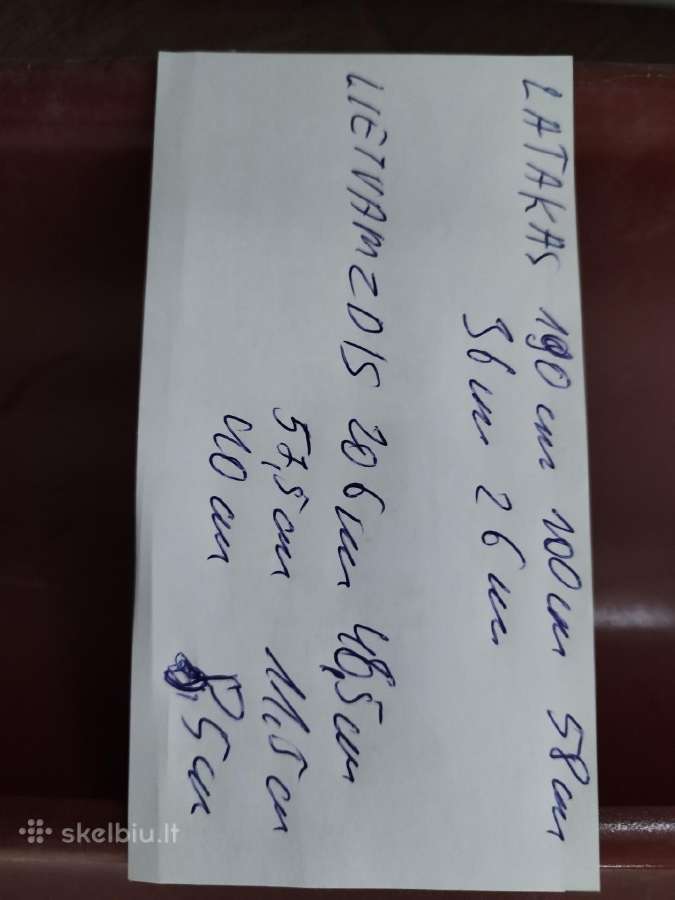 LATAKAS 190 cm 100 cm 58 cm
36 cm 26 cm
LIETVAMZDIS 206 cm 48,5 cm
57,5 cm 11.5 cm
40 cm 8,5 cm
skelbiu.lt